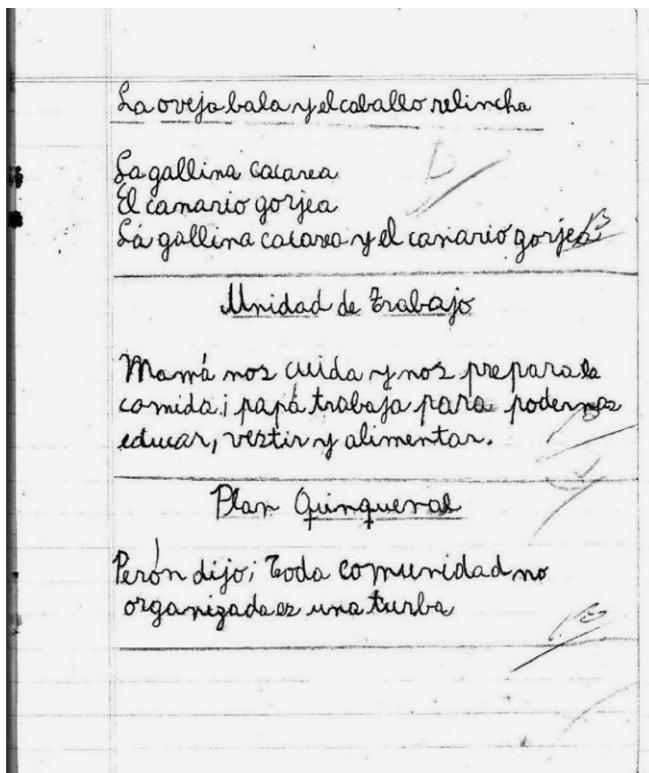 La oveja bala y el caballo relincha
La gallina cacarea
El canario gorjea
La gallina cacarea y el canario gorjea
Unidad de Trabajo
Mamá nos cuida y nos prepara la
comida; papá trabaja para podernos
educar, vestir y alimentar.
Plan Quinquenal
Perón dijo; Toda comunidad no
organizada es una turba